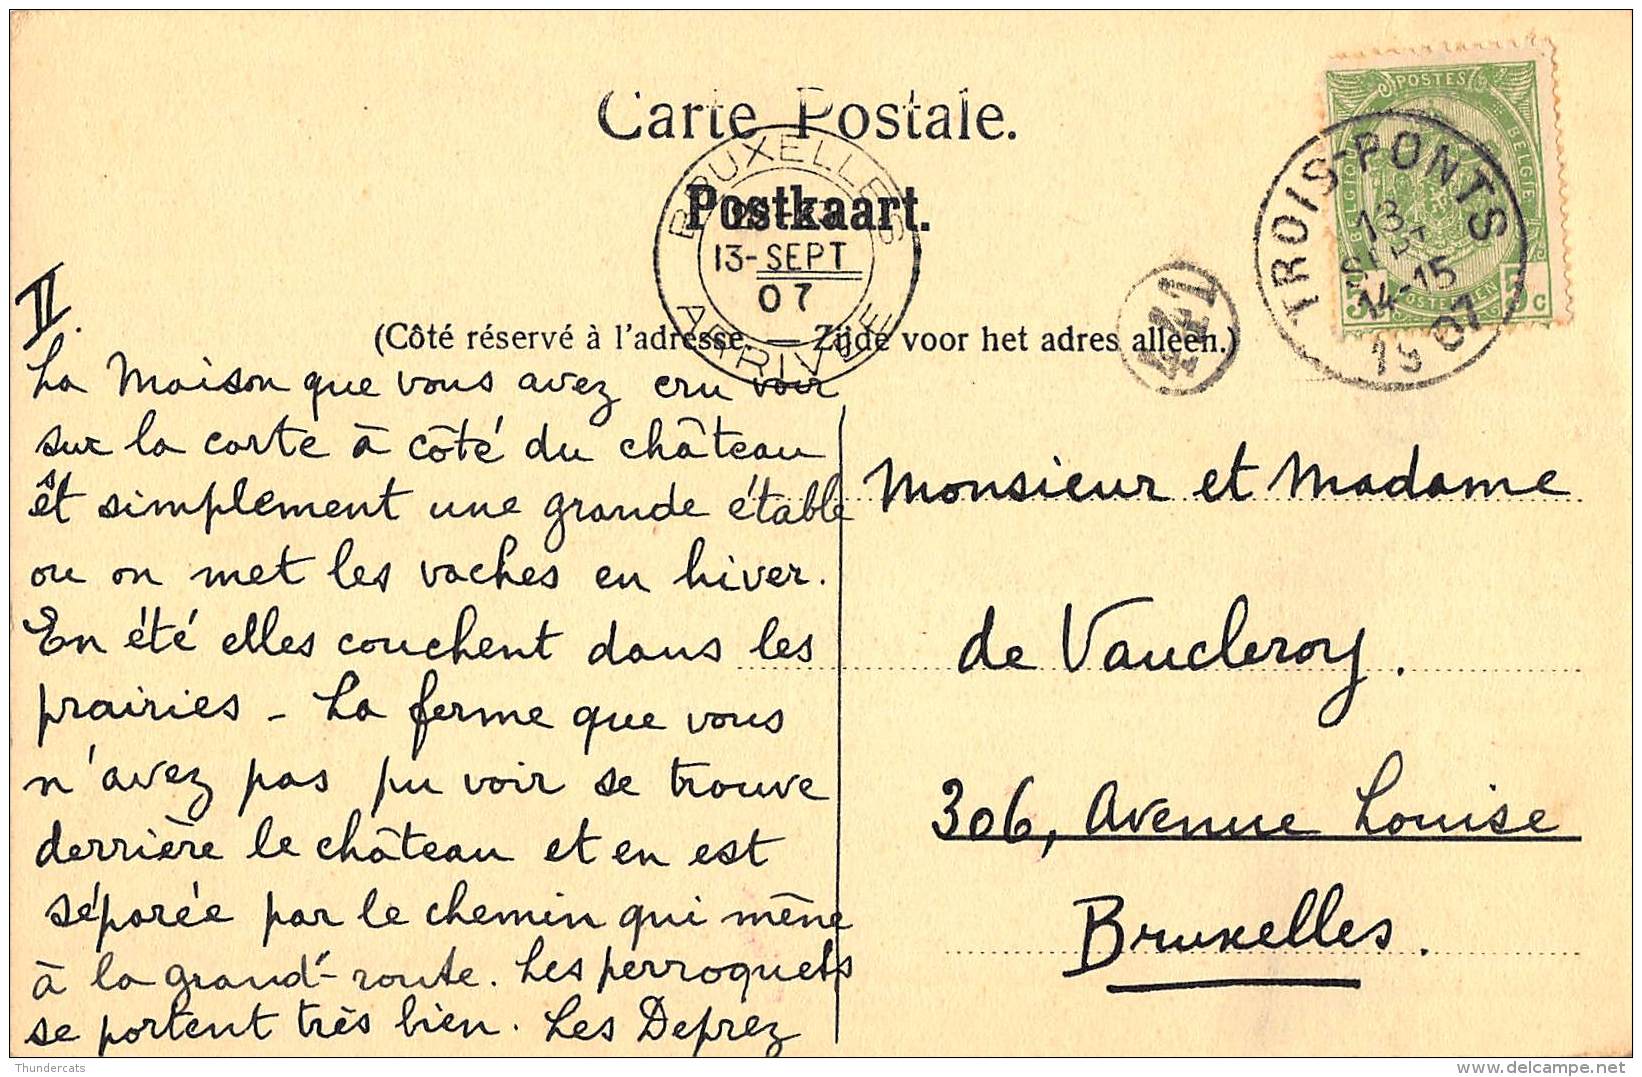 Carte Postale.
Postkaart.
(Côté réservé à l'adresse. — Zijde voor het adres alleen.)
BRUXELLES
13-SEPT
07
ARRIVEE
441
POSTES
BELGIQUE
BELGIE
POSTERIJEN
5 5 C
TROIS-PONTS
13
SEPT
14-15
19 07
II.
La Maison que vous avez cru voir
sur la carte à côté du château
est simplement une grande étable
ou on met les vaches en hiver.
En été elles couchent dans les
prairies - La ferme que vous
n'avez pas pu voir se trouve
derrière le château et en est
séparée par le chemin qui mène
à la grand'-route. Les perroquets
se portent très bien. Les Deprez
Monsieur et Madame
de Vaucleroy.
306, Avenue Louise
Bruxelles.
Thundercats
delcampe.net